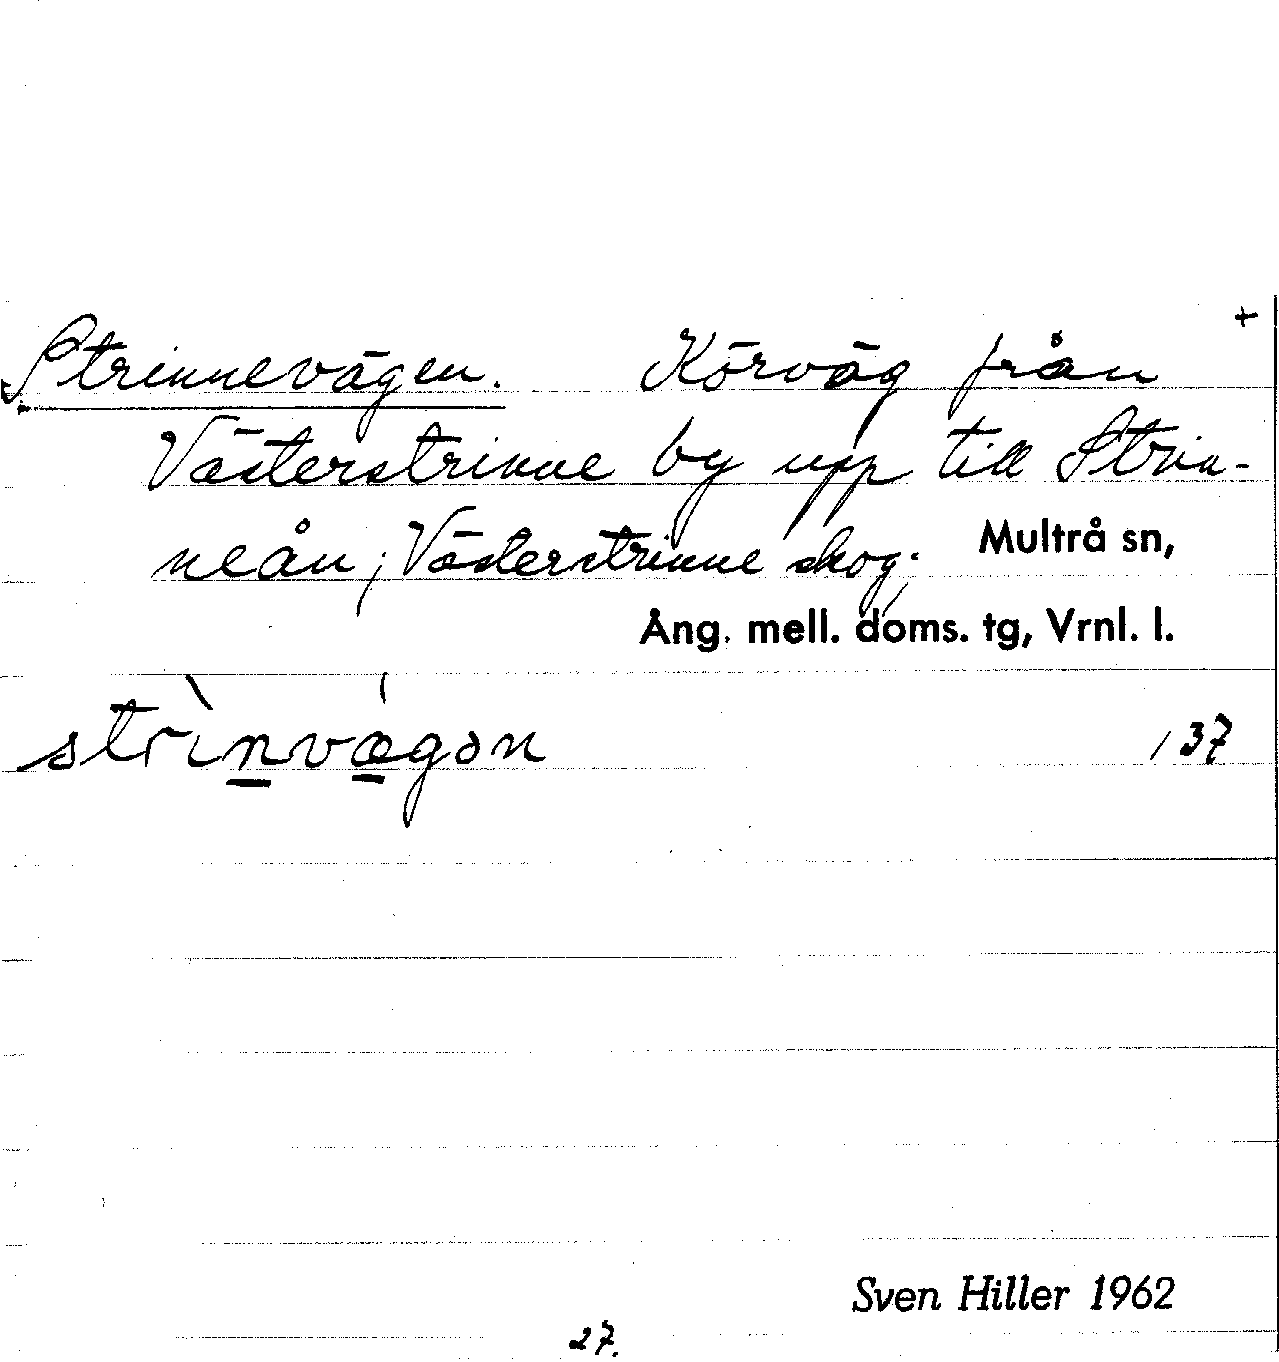 +
Strinnevägen. Körväg från
Västerstrinne by upp till Strin-
neån; Västerstrinne skog. Multrå sn,
Ång. mell. doms. tg, Vrnl. l.
strìnvǽgən /37
Sven Hiller 1962
27.